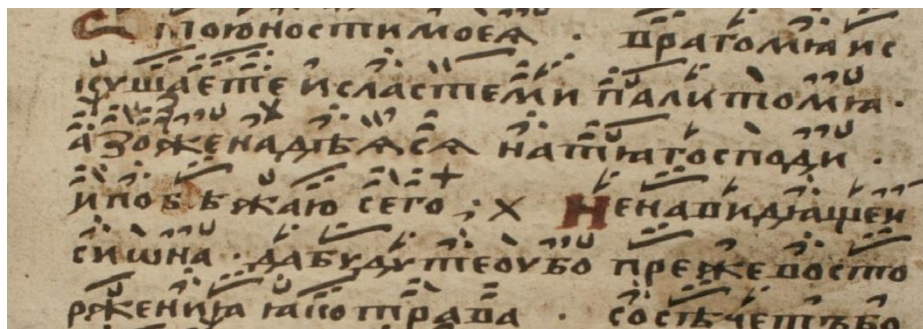 Отоюностимоеѧ · врагомѧис
кушаетеислаⷭ҇темипалитомѧ ·
азоженадѣѧсѧ натѧгосподи ·
ипобѣжаюсего · Ненавидѧщеи
сиѡна · дабудутеоубопрежевосто
рженїѧ ꙗкотрава · сосѣчетъбо